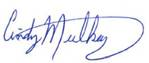 Cindy Mulkey